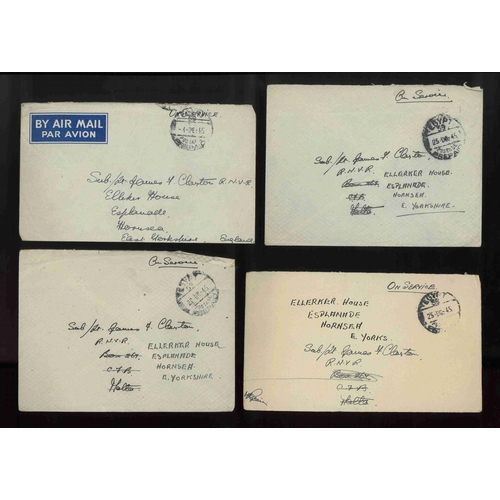 BY AIR MAIL
PAR AVION
ON SERVICE
Sub/Lt. James F. Claxton R.N.V.R
Ellerker House
Esplanade
Hornsea
East Yorkshire England
On Service
EGYPT
Sub/Lt. James F. Claxton.
R.N.V.R ELLERKER HOUSE
ESPLANADE.
C.F.R HORNSEA
Malta E. YORKSHIRE.
On Service
Sub/Lt. James F. Claxton
R.N.V.R. ELLERKER HOUSE
ESPLANADE
C.F.R HORNSEA
Malta E. YORKSHIRE
ON SERVICE
ELLERKER HOUSE
ESPLANADE
HORNSEA
E. YORKS
Sub/Lt. James F. Claxton.
R.N.V.R
C.F.R
Malta